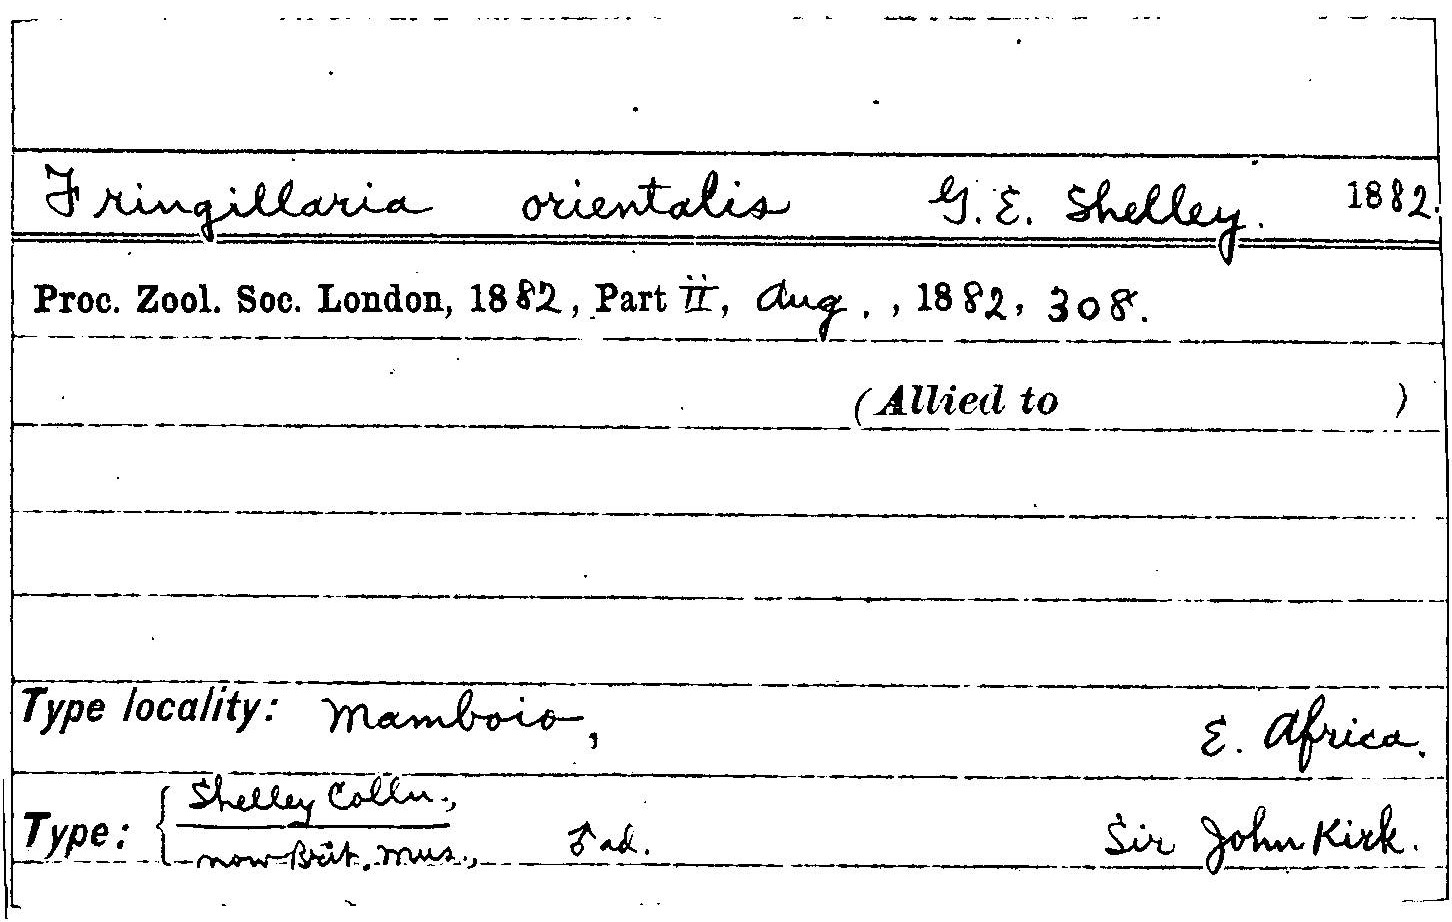 Fringillaria orientalis G. E. Shelley. 1882.
Proc. Zool. Soc. London, 1882, Part II, Aug., 1882, 308.
(Allied to )
Type locality: Mamboio, E. Africa.
Shelley Colln.,
Type: ♂ ad. Sir John Kirk.
now Brit. Mus.,